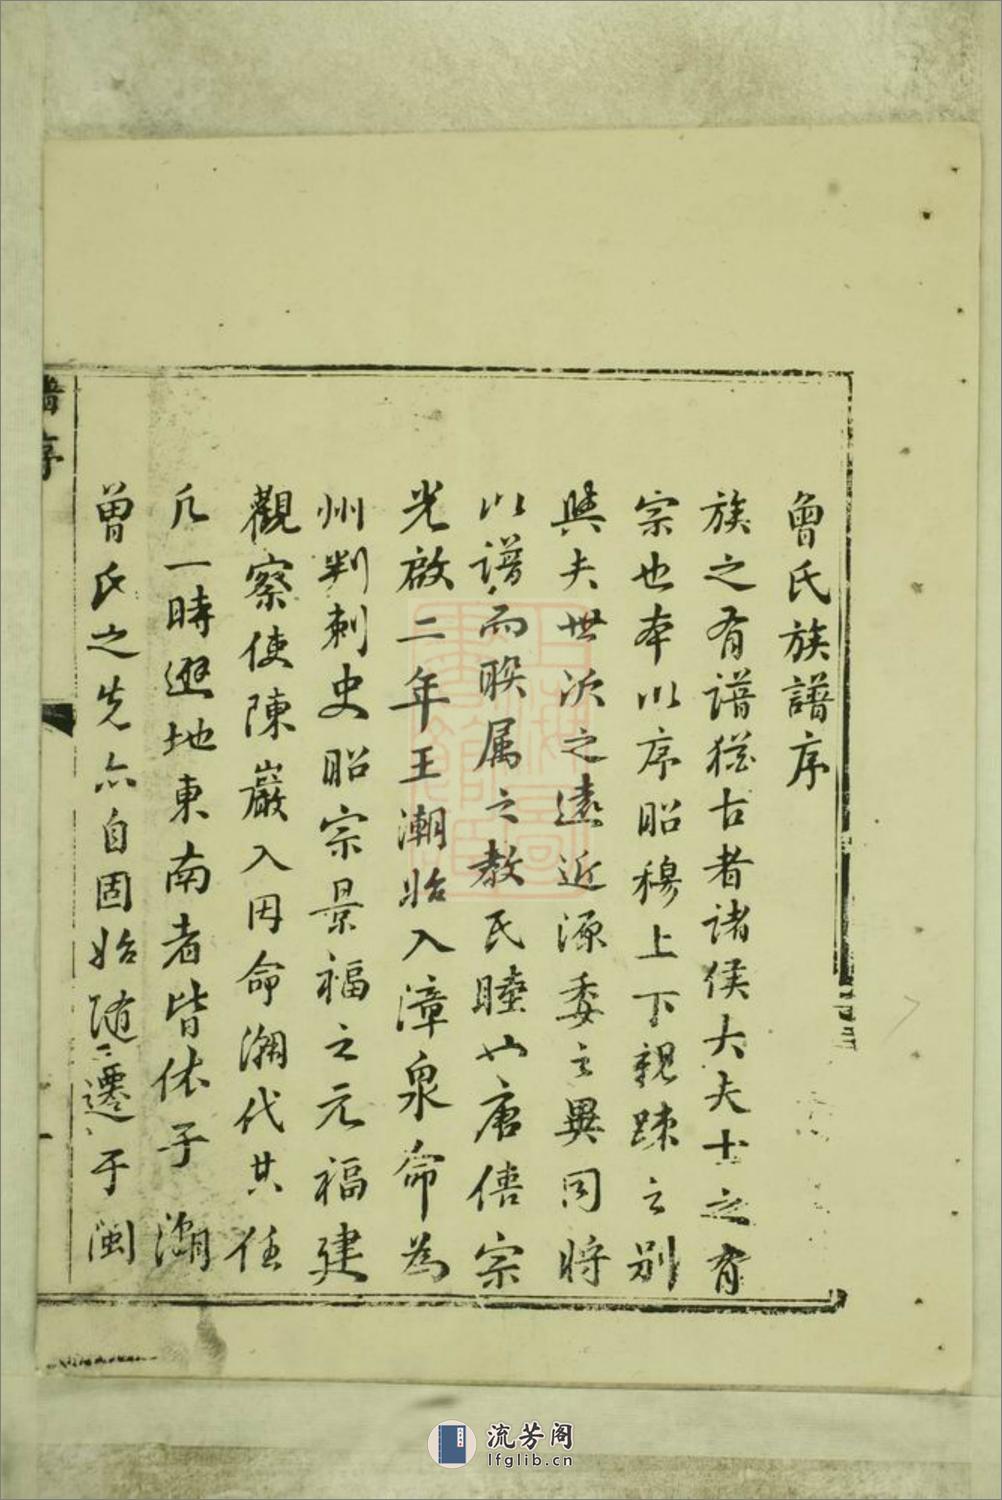 曾氏族譜序
族之有譜猶古者諸侯大夫士之有
宗也本以序昭穆上下親疎之別
與夫世次之遠近源委之異同將
以譜而聮属之教民睦也唐僖宗
光啟二年王潮始入漳泉命為
州判刺史昭宗景福之元福建
觀察使陳巖入因命潮代其任
凡一時避地東南者皆依于潮
曾氏之先亦自固始随遷于閩
譜序
流芳阁
lfglib.cn